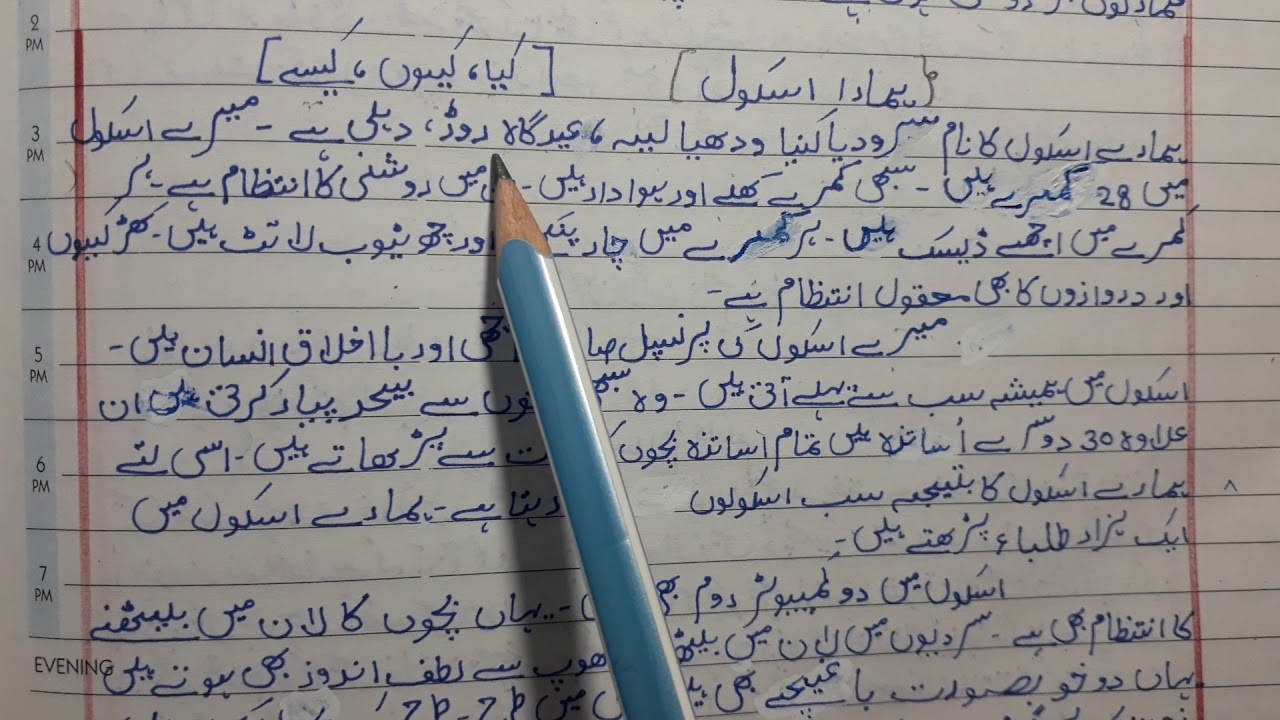 [ہمارا اسکول] [کیا، کیوں، کیسے]
ہمارے اسکول کا نام سرودیا کنیا ودھیالیہ، عیدگاہ روڈ، دہلی ہے - میرے اسکول
میں 28 کمرے ہیں - سبھی کمرے کھلے اور ہوادار ہیں - میں روشنی کا انتظام ہے - ہر
کمرے میں اچھے ڈیسک ہیں - ہر کمرے میں چار اور چھ ٹیوب لائٹ ہیں - کھڑکیوں
اور دروازوں کا بھی معقول انتظام ہے -
میرے اسکول کی پرنسپل اور بااخلاق انسان ہیں -
اسکول میں ہمیشہ سب سے پہلے آتی ہیں - وہ سے بیحد پیار کرتی ہیں ان
علاوہ 30 دوسرے اُساتذہ ہیں تمام اساتذہ بچوں سے پڑھاتے ہیں - اسی لئے
ہمارے اسکول کا نتیجہ سب اسکولوں رہتا ہے - ہمارے اسکول میں
ایک ہزار طلباء پڑھتے ہیں -
اسکول میں دو کمپیوٹر روم - یہاں بچوں کا لان میں بیٹھنے
کا انتظام بھی ہے - سردیوں میں لان میں سے لطف اندوز بھی ہوتے ہیں
یہاں دو خوبصورت باغیچے بھی میں
2 PM
3 PM
4 PM
5 PM
6 PM
7 PM
EVENING